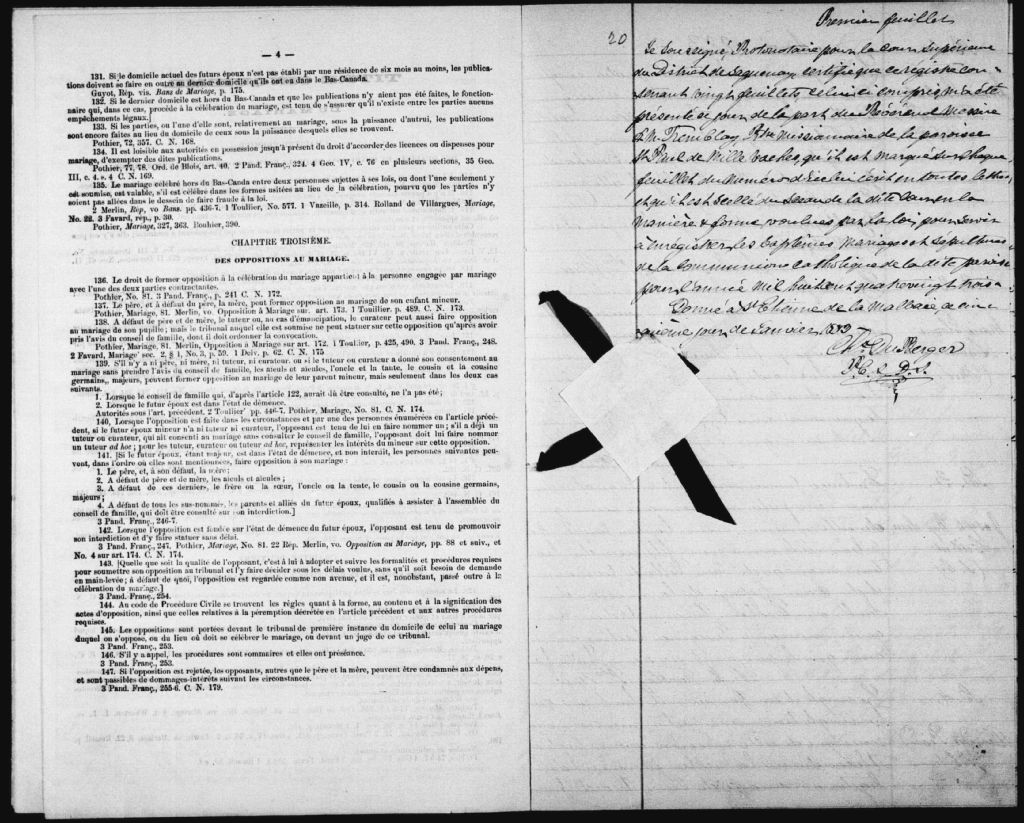 — 4 —
131. Si le domicile actuel des futurs époux n'est pas établi par une résidence de six mois au moins, les publica-
tions doivent se faire en outre au dernier domicile qu'ils ont eu dans le Bas-Canada.
Guyot, Rép. vis. Bans de Mariage, p. 175.
132. Si le dernier domicile est hors du Bas-Canada et que les publications n'y aient pas été faites, le fonction-
naire qui, dans ce cas, procède à la célébration du mariage, est tenu de s'assurer qu'il n'existe entre les parties aucuns
empêchements légaux.]
133. Si les parties, ou l'une d'elle sont, relativement au mariage, sous la puissance d'autrui, les publications
sont encore faites au lieu du domicile de ceux sous la puissance desquels elles se trouvent.
Pothier, 72, 357. C. N. 168.
134. Il est loisible aux autorités en possession jusqu'à présent du droit d'accorder des licences ou dispenses pour
mariage, d'exempter des dites publications.
Pothier, 77, 78. Ord. de Blois, art. 40. 2 Pand. Franç., 324. 4 Geo. IV, c. 76 en plusieurs sections, 35 Geo.
III, c. 4. s. 4 C. N. 169.
135. Le mariage célébré hors du Bas-Canda entre deux personnes sujettes à ses lois, ou dont l'une seulement y
est soumise, est valable, s'il est célébré dans les formes usitées au lieu de la célébration, pourvu que les parties n'y
soient pas allées dans le dessein de faire fraude à la loi.
2 Merlin, Rép, vo Bans. pp. 436-7. 1 Toullier, No. 577. 1 Vazeille, p. 314. Rolland de Villargues, Mariage,
No. 22. 3 Favard, rép., p. 30.
Pothier, Mariage, 327, 363. Bouhier, 390.
CHAPITRE TROISIÈME.
DES OPPOSITIONS AU MARIAGE.
136. Le droit de former opposition à la célébration du mariage appartient à la personne engagée par mariage
avec l'une des deux parties contractantes.
Pothier, No. 81. 3 Pand. Franç., p. 241 C. N. 172.
137. Le père, et à défaut du père, la mère, peut former opposition au mariage de son enfant mineur.
Pothier, Mariage, 81. Merlin, vo. Opposition à Mariage sur. art. 173. 1 Toullier. p. 489. C. N. 173.
138. A défaut de père et de mère, le tuteur ou, au cas d'émancipation, le curateur peut aussi faire opposition
au mariage de son pupille; mais le tribunal auquel elle est soumise ne peut statuer sur cette opposition qu'après avoir
pris l'avis du conseil de famille, dont il doit ordonner la convocation.
Pothier, Mariage, 81. Merlin, Opposition à Mariage sur art. 172. 1 Toullier, p. 425, 490. 3 Pand. Franç., 248.
2 Favard, Mariage' sec. 2, § 1, No. 3, p. 59. 1 Delv. p. 62. C. N. 175
139. S'il n'y a ni père, ni mère, ni tuteur, ni curateur. ou si le tuteur ou curateur a donné son consentement au
mariage sans prendre l'avis du conseil de famille, les aïeuls et aïeules, l'oncle et la tante, le cousin et la cousine
germains,, majeurs, peuvent former opposition au mariage de leur parent mineur, mais seulement dans les deux cas
suivants.
1. Lorsque le conseil de famille qui, d'après l'article 122, aurait dû être consulté, ne l'a pas été;
2. Lorsque le futur époux est dans l'état de démence.
Autorités sous l'art. précédent. 2 Toullier' pp. 446-7. Pothier, Mariage, No. 81, C. N. 174.
140, Lorsque l'opposition est faite dans les circonstances et par une des personnes énumérées en l'article précé-
dent, si le futur époux mineur n'a ni tuteur ni curateur, l'opposant est tenu de lui en faire nommer un; s'il a déjà un
tuteur ou curateur, qui ait consenti au mariage sans consulter le conseil de famille, l'opposant doit lui faire nommer
un tuteur ad hoc; pour les tuteur, curateur ou tuteur ad hoc, représenter les intérêts du mineur sur cette opposition.
141. [Si le futur époux, étant majeur, est dans l'état de démence, et non interdit, les personnes suivantes peu-
vent, dans l'ordre où elles sont mentionnées, faire opposition à son mariage:
1. Le père, et, à son défaut, la mère;
2. A défaut de père et de mère, les aïeuls et aïeules;
3. A défaut de ces derniers, le frère ou la sœur, l'oncle ou la tente, le cousin ou la cousine germains,
majeurs;
4. A défaut de tous les sus-nommés, les parents et alliés du futur époux, qualifiés à assister à l'assemblée du
conseil de famille, qui doit être consulté sur son interdiction.]
3 Pand. Franç., 246-7.
142. Lorsque l'opposition est fondée sur l'état de démence du futur époux, l'opposant est tenu de promouvoir
son interdiction et d'y faire statuer sans délai.
3 Pand. Franç., 247. Pothier, Mariage, No. 81. 22 Rép. Merlin, vo. Opposition au Mariage, pp. 88 et suiv., et
No. 4 sur art. 174. C. N. 174.
143. [Quelle que soit la qualité de l'opposant, c'est à lui à adopter et suivre les formalités et procédures requises
pour soumettre son opposition au tribunal et l'y faire décider sous les délais voulus, sans qu'il soit besoin de demande
en main-levée; à défaut de quoi, l'opposition est regardée comme non avenue, et il est, nonobstant, passé outre à la
célébration du mariage.]
3 Pand. Franç., 254.
144. Au code de Procédure Civile se trouvent les règles quant à la forme, au contenu et à la signification des
actes d'opposition, ainsi que celles relatives à la péremption décrétée en l'article précédent et aux autres procédures
requises.
145. Les oppositions sont portées devant le tribunal de première instance du domicile de celui au mariage
duquel on s'oppose, ou du lieu où doit se célébrer le mariage, ou devant un juge de ce tribunal.
3 Pand. Franç., 253.
146. S'il y a appel, les procédures sont sommaires et elles ont préséance.
3 Pand. Franç., 253.
147. Si l'opposition est rejetée, les opposants, autres que le père et la mère, peuvent être condamnés aux dépens,
et sont passibles de dommages-intérêts suivant les circonstances.
3 Pand. Franç., 255-6. C. N. 179.
Premier feuillet
20
Je soussigné, Protonotaire pour la cour Supérieure
du District de Saguenay, certifie que ce registre con-
tenant vingt feuillets celui-ci compris m'a été
présenté ce jour de la part du Révérend Messire
Tremblay, Ptre Missionnaire de la paroisse
St Paul de Mille Vaches, qu'il est marqué sur chaque
feuillet du numéro d'icelui écrit en toutes lettres
et qu'il est scellé du sceau de la dite Cour en la
manière & forme voulues par la loi, pour servir
à enregistrer les baptêmes, mariages et sépultures
de la communion catholique de la dite paroisse
pour l'année mil huit cent quatre vingt trois.
Donné à St Etienne de la Malbaie, ce cin-
quième jour de Janvier 1883
Chs DuBerger
P. C. S. D. S.